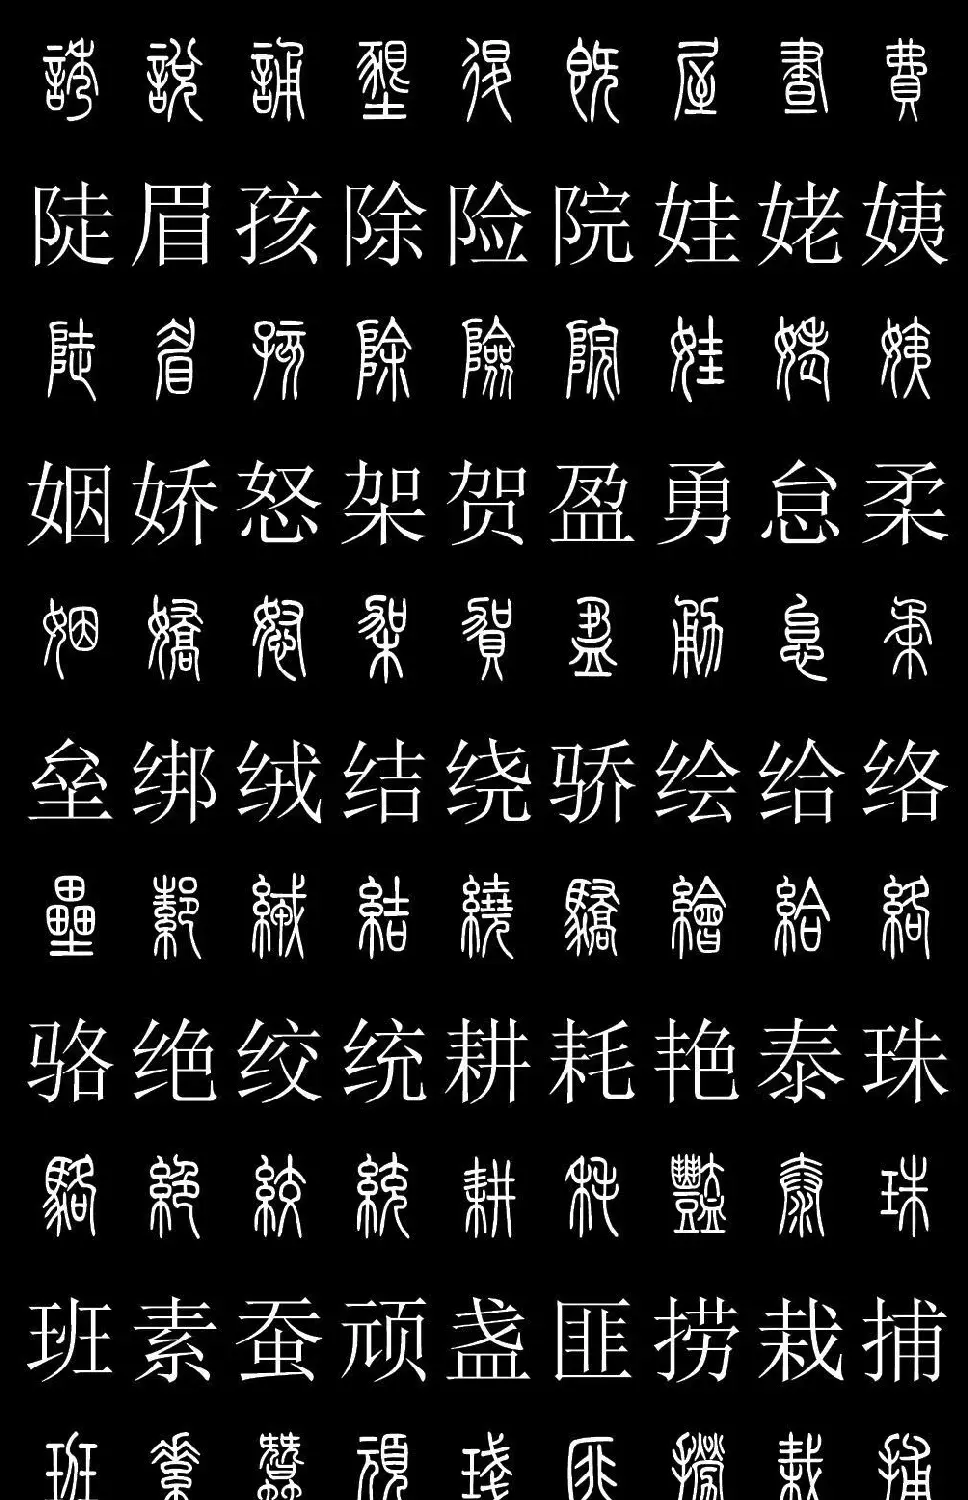 誘說誦墾退既屋晝費
陡眉孩除险院娃姥姨
陡眉孩除險院娃姥姨
姻娇怒架贺盈勇怠柔
姻嬌怒架賀盈勇怠柔
垒绑绒结绕骄绘给络
壘綁絨結繞驕繪給絡
骆绝绞统耕耗艳泰珠
駱絕絞統耕耗豔泰珠
班素蚕顽盏匪捞栽捕
班素蠶頑琖匪撈栽捕